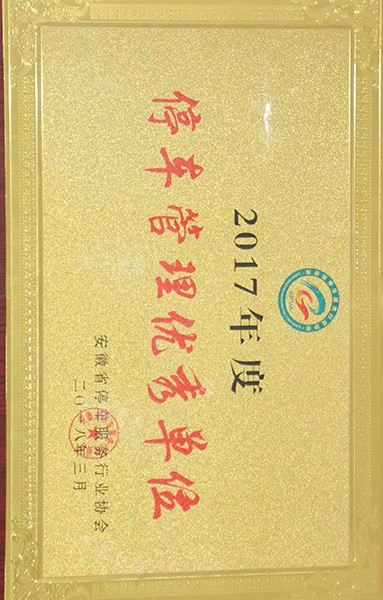 2017年度
停车管理优秀单位
安徽省停车服务行业协会
二〇一八年三月